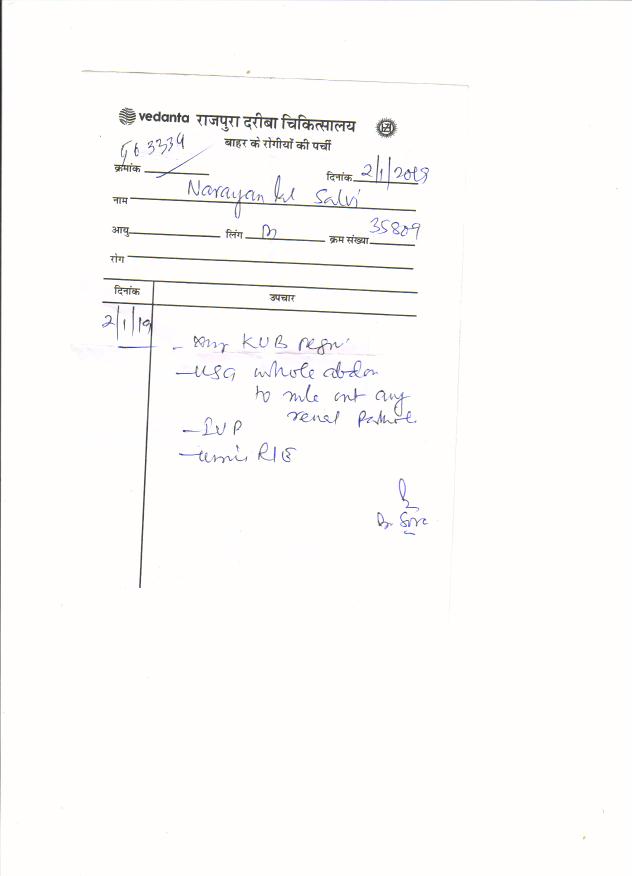 vedanta राजपुरा दरीबा चिकित्सालय HZL
बाहर के रोगीयों की पर्ची
क्रमांक 963334 दिनांक 2/1/2019
नाम Narayan lal Salvi
आयु लिंग M क्रम संख्या 35809
रोग
दिनांक उपचार
2/1/19
- Xray KUB region
- USG whole abdom
to rule out any
renal Pathol.
- IVP
- urine R/E
Dr